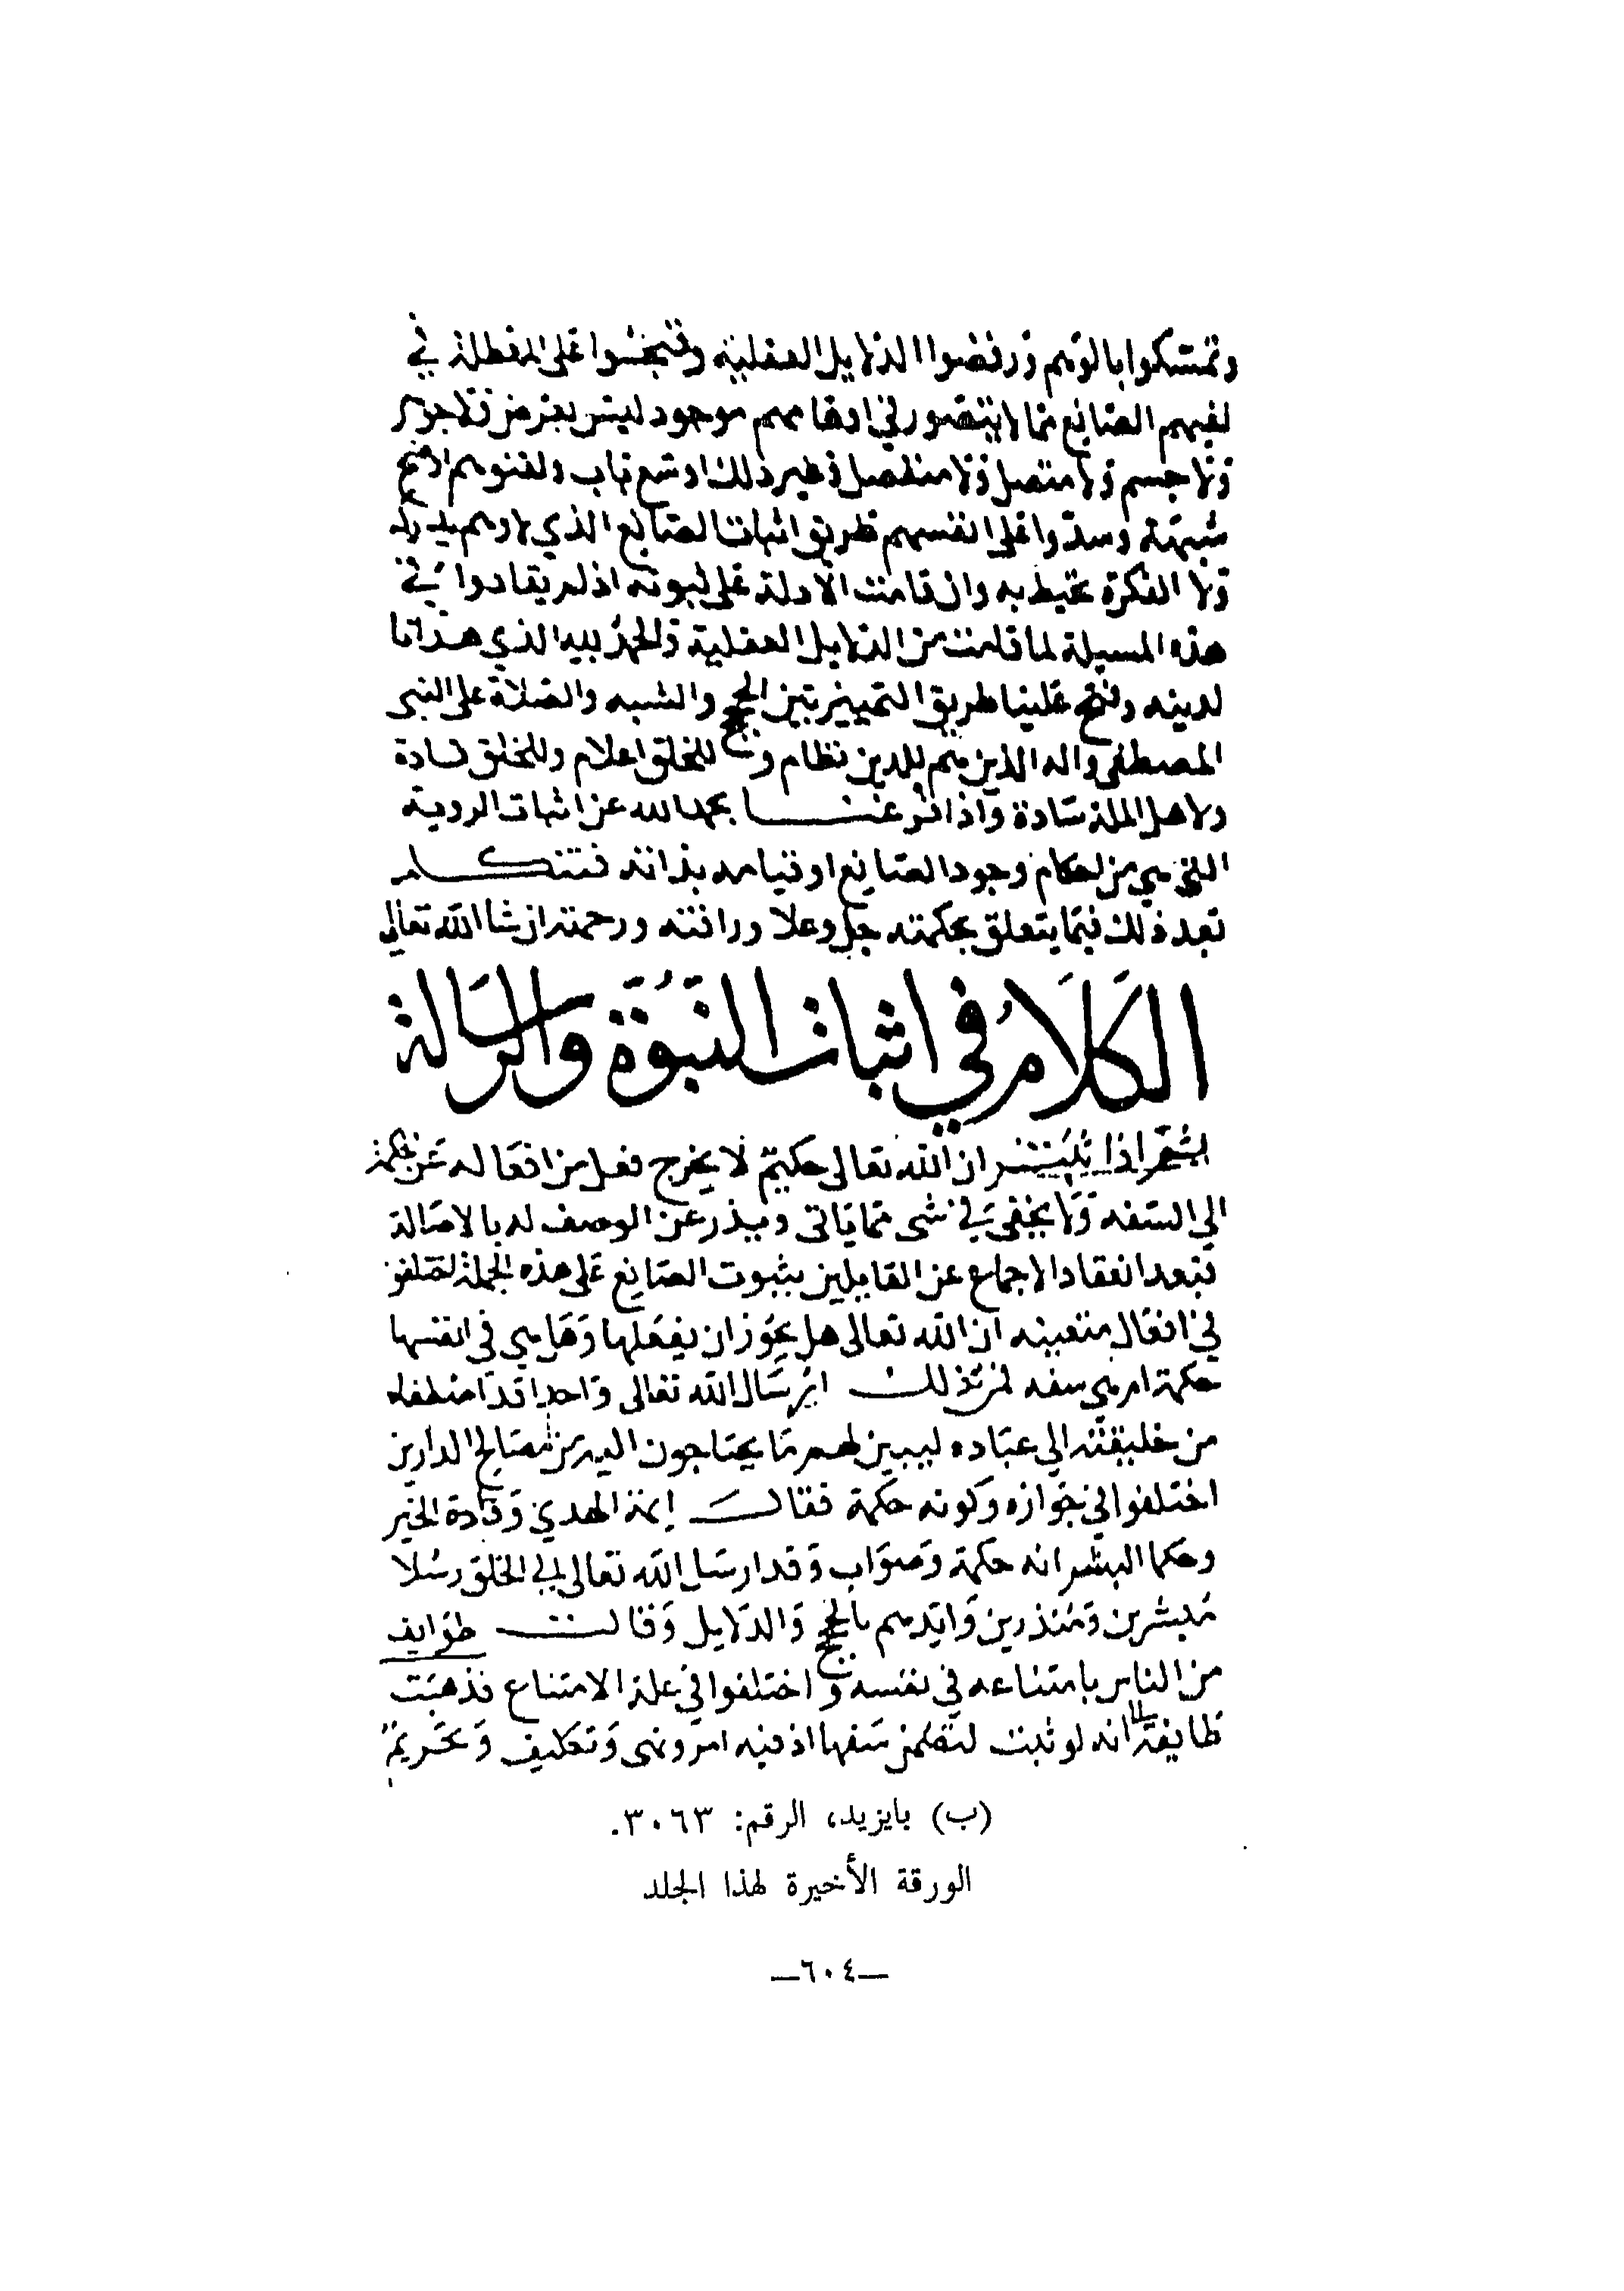 وتمسكوا بالوهم ورفضوا الدلايل العقلية وفتحوا على المعطلة في
نفيهم الصانع مما لا يتصور في اوهامهم موجود ليس بعرض ولا جوهر
ولا جسم ولا متصل ولا منفصل وغير ذلك اوسع باب ولقنوهم اوضح
شبهة وسدوا على انفسهم طريق اثبات الصانع الذي لا وهم يدركه
ولا الفكرة تحيط به وان قامت الادلة على ثبوته اذ لم ينقادوا في
هذه المسيلة لما قامت من الدلايل العقلية والحمد لله الذي هدانا
لدينه وفتح علينا طريق التمييز بين الحجج والشبه والصلاة على النبي
المصطفى واله الذين هم للدين نظام و للخلق اعلام وللخلق قادة
ولاهل الملة سادة واذا فرغنا بحمد الله عن اثبات الروية
التي هي من احكام وجود الصانع او قيامه بذاته فنتكلم
بعد ذلك فيما يتعلق بحكمته جل وعلا ورافته ورحمته ان شا الله تعالى
الكلام في اثبات النبوة والرسالة
ثم اذا ثبت ان الله تعالى حكيم لا يخرج فعل من افعاله عن الحكمة
الى السفه ولا يخفى في شى مما ياتى ويذر عن الوصف له بالاصالة
فبعد انعقاد الاجماع عن القايلين بثبوت الصانع على هذه الجملة اختلفوا
في افعال متعينه ان الله تعالى هل يجوز ان يفعلها وهل هي في انفسها
حكمة ام هي سفه فمن ذلك ارسال الله تعالى واحدا قد اصطفاه
من خليقته الى عباده ليبين لهم ما يحتاجون اليه من مصالح الدارين
اختلفوا في جوازه وكونه حكمة فقال ايمة الهدي وقادة الخير
وحكما البشر انه حكمة وصواب وقد ارسل الله تعالى الى الخلق رسلا
مبشرين ومنذرين وايدهم بالحجج والدلايل وقالت طوايف
من الناس بامتناعه في نفسه واختلفوا في علة الامتناع فذهبت
طايفة انه لو ثبت لتضمن سفها اذ فيه امر ونهى وتكليف وتحريم
(ب) بايزيد، الرقم: ٣٠٦٣.
الورقة الأخيرة لهذا الجلد
—٦٠٤—